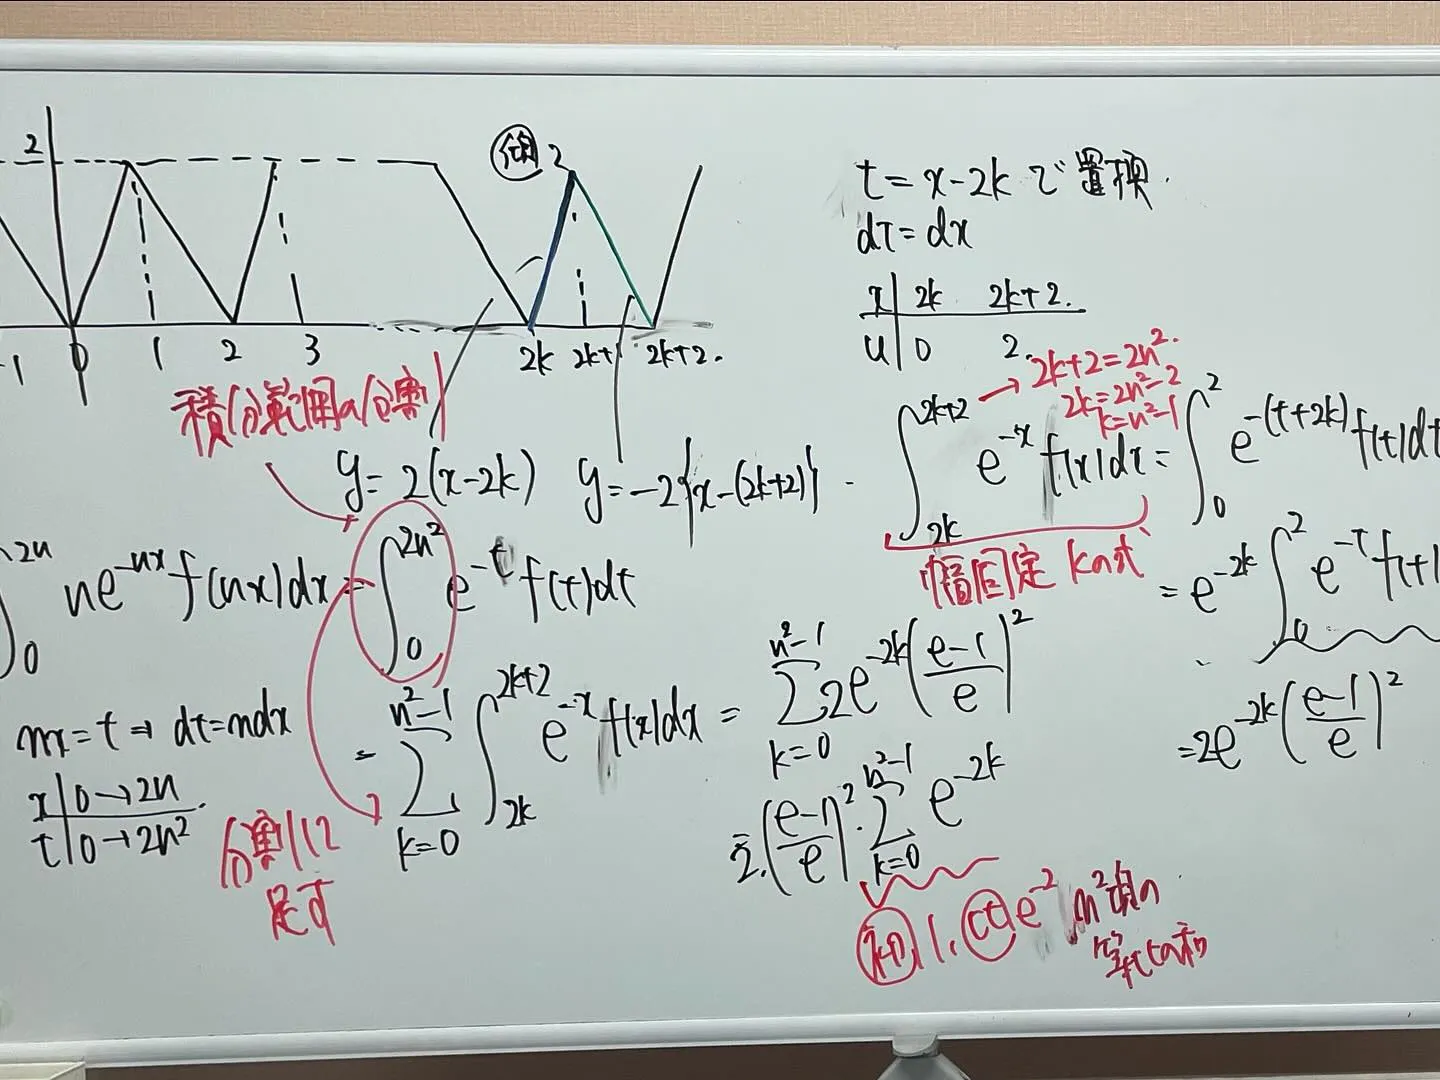 2
-1 0 1 2 3
例 2
2k 2k+1 2k+2.
積分範囲の分割
y=2(x-2k) y=-2{x-(2k+2)}
∫_0^{2n} ne^{-nx}f(nx)dx=∫_0^{2n^2} e^{-t}f(t)dt
nx=t⇒dt=ndx
x|0→2n
t|0→2n^2
分割して
足す
=∑_{k=0}^{n^2-1}∫_{2k}^{2k+2} e^{-x}f(x)dx=∑_{k=0}^{n^2-1}2e^{-2k}(\frac{e-1}{e})^2
=2・(\frac{e-1}{e})^2・∑_{k=0}^{n^2-1}e^{-2k}
初 1, 比 e^{-2} n^2項の
等比の和
t=x-2kで置換.
dt=dx
x|2k 2k+2.
u|0 2.
→2k+2=2n^2.
2k=2n^2-2
k=n^2-1
∫_{2k}^{2k+2} e^{-x}f(x)dx=∫_0^2 e^{-(t+2k)}f(t)dt
幅固定 kの式
=e^{-2k}∫_0^2 e^{-t}f(t)
=2e^{-2k}(\frac{e-1}{e})^2